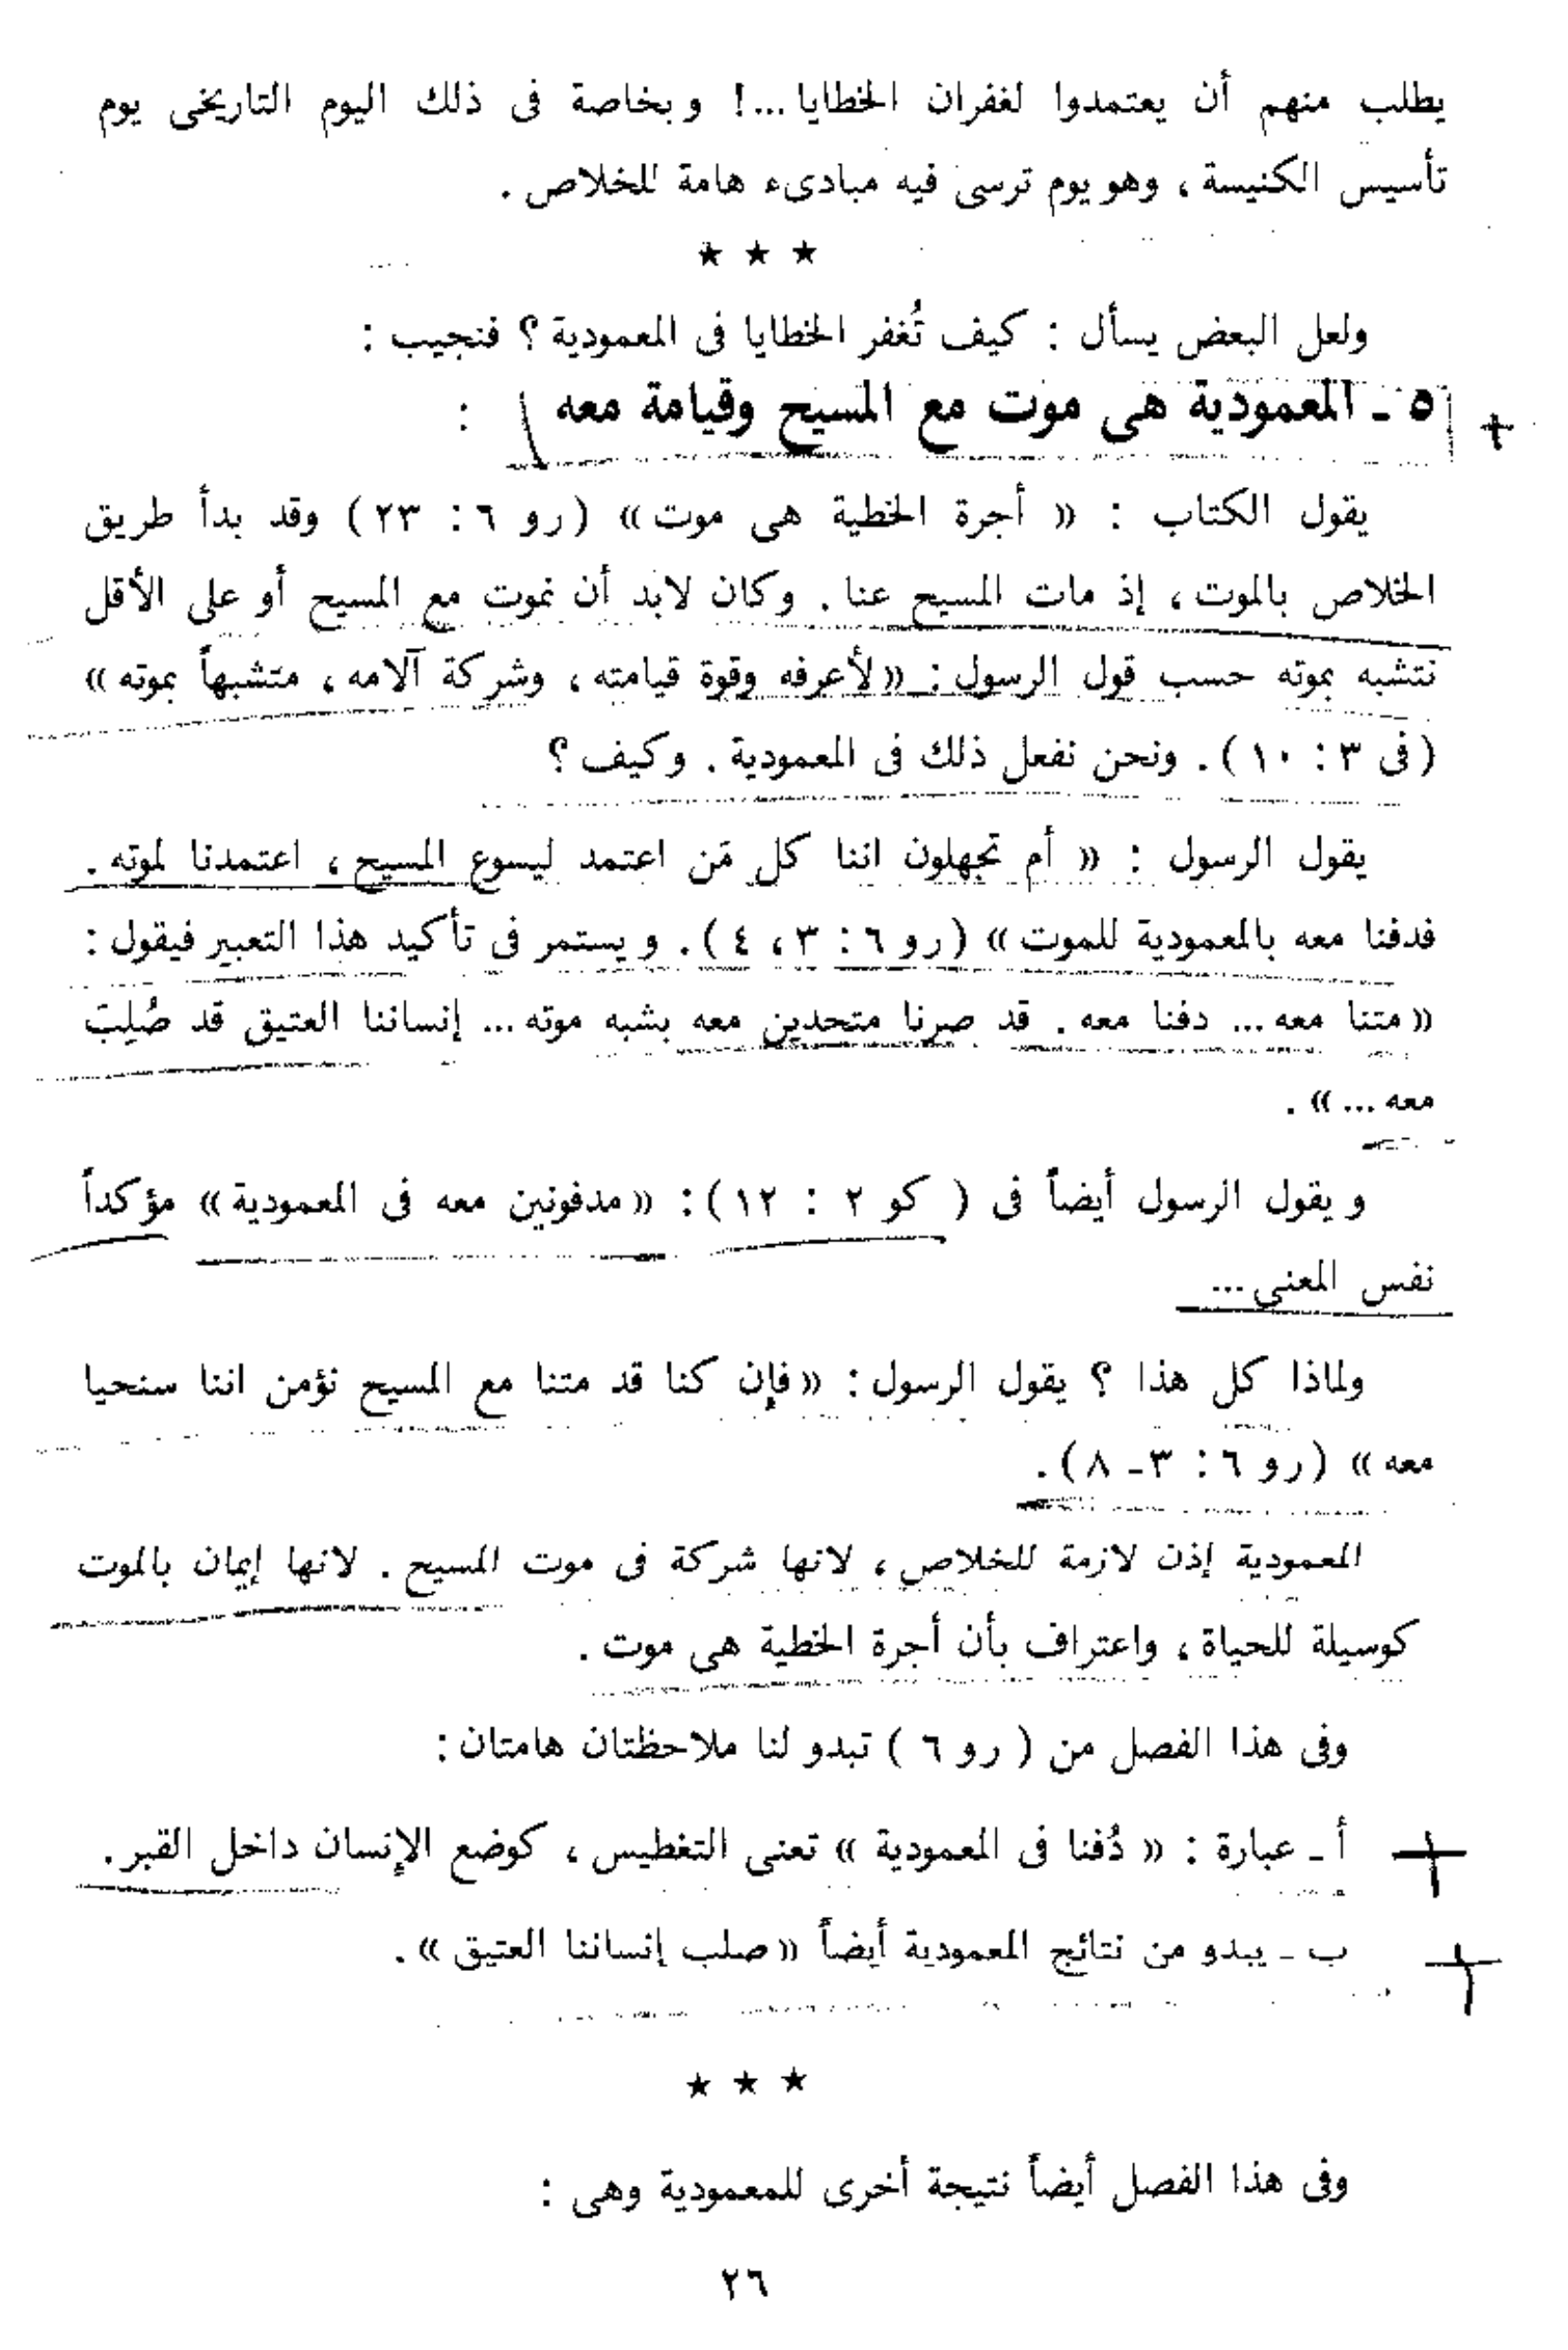 يطلب منهم أن يعتمدوا لغفران الخطايا ...! وبخاصة فى ذلك اليوم التاريخى يوم
تأسيس الكنيسة ، وهو يوم ترسى فيه مبادىء هامة للخلاص .
★ ★ ★
ولعل البعض يسأل : كيف تُغفر الخطايا فى المعمودية ؟ فنجيب :
٥ ـ المعمودية هى موت مع المسيح وقيامة معه :
يقول الكتاب : « أجرة الخطية هى موت » ( رو ٦ : ٢٣ ) وقد بدأ طريق
الخلاص بالموت ، إذ مات المسيح عنا . وكان لابد أن نموت مع المسيح أو على الأقل
نتشبه بموته حسب قول الرسول : « لأعرفه وقوة قيامته ، وشركة آلامه ، متشبهاً بموته »
( فى ٣ : ١٠ ) . ونحن نفعل ذلك فى المعمودية . وكيف ؟
يقول الرسول : « أم تجهلون اننا كل مَن اعتمد ليسوع المسيح ، اعتمدنا لموته .
فدفنا معه بالمعمودية للموت » ( رو ٦ : ٣ ، ٤ ) . ويستمر فى تأكيد هذا التعبير فيقول :
« متنا معه ... دفنا معه . قد صرنا متحدين معه بشبه موته ... إنساننا العتيق قد صُلِبَ
معه ... » .
ويقول الرسول أيضاً فى ( كو ٢ : ١٢ ) : « مدفونين معه فى المعمودية » مؤكداً
نفس المعنى ...
ولماذا كل هذا ؟ يقول الرسول : « فإن كنا قد متنا مع المسيح نؤمن اننا سنحيا
معه » ( رو ٦ : ٣ ـ ٨ ) .
المعمودية إذن لازمة للخلاص ، لانها شركة فى موت المسيح . لانها إيمان بالموت
كوسيلة للحياة ، واعتراف بأن أجرة الخطية هى موت .
وفى هذا الفصل من ( رو ٦ ) تبدو لنا ملاحظتان هامتان :
أ ـ عبارة : « دُفنا فى المعمودية » تعنى التغطيس ، كوضع الإنسان داخل القبر .
ب ـ يبدو من نتائج المعمودية أيضاً « صلب إنساننا العتيق » .
★ ★ ★
وفى هذا الفصل أيضاً نتيجة أخرى للمعمودية وهى :
٢٦